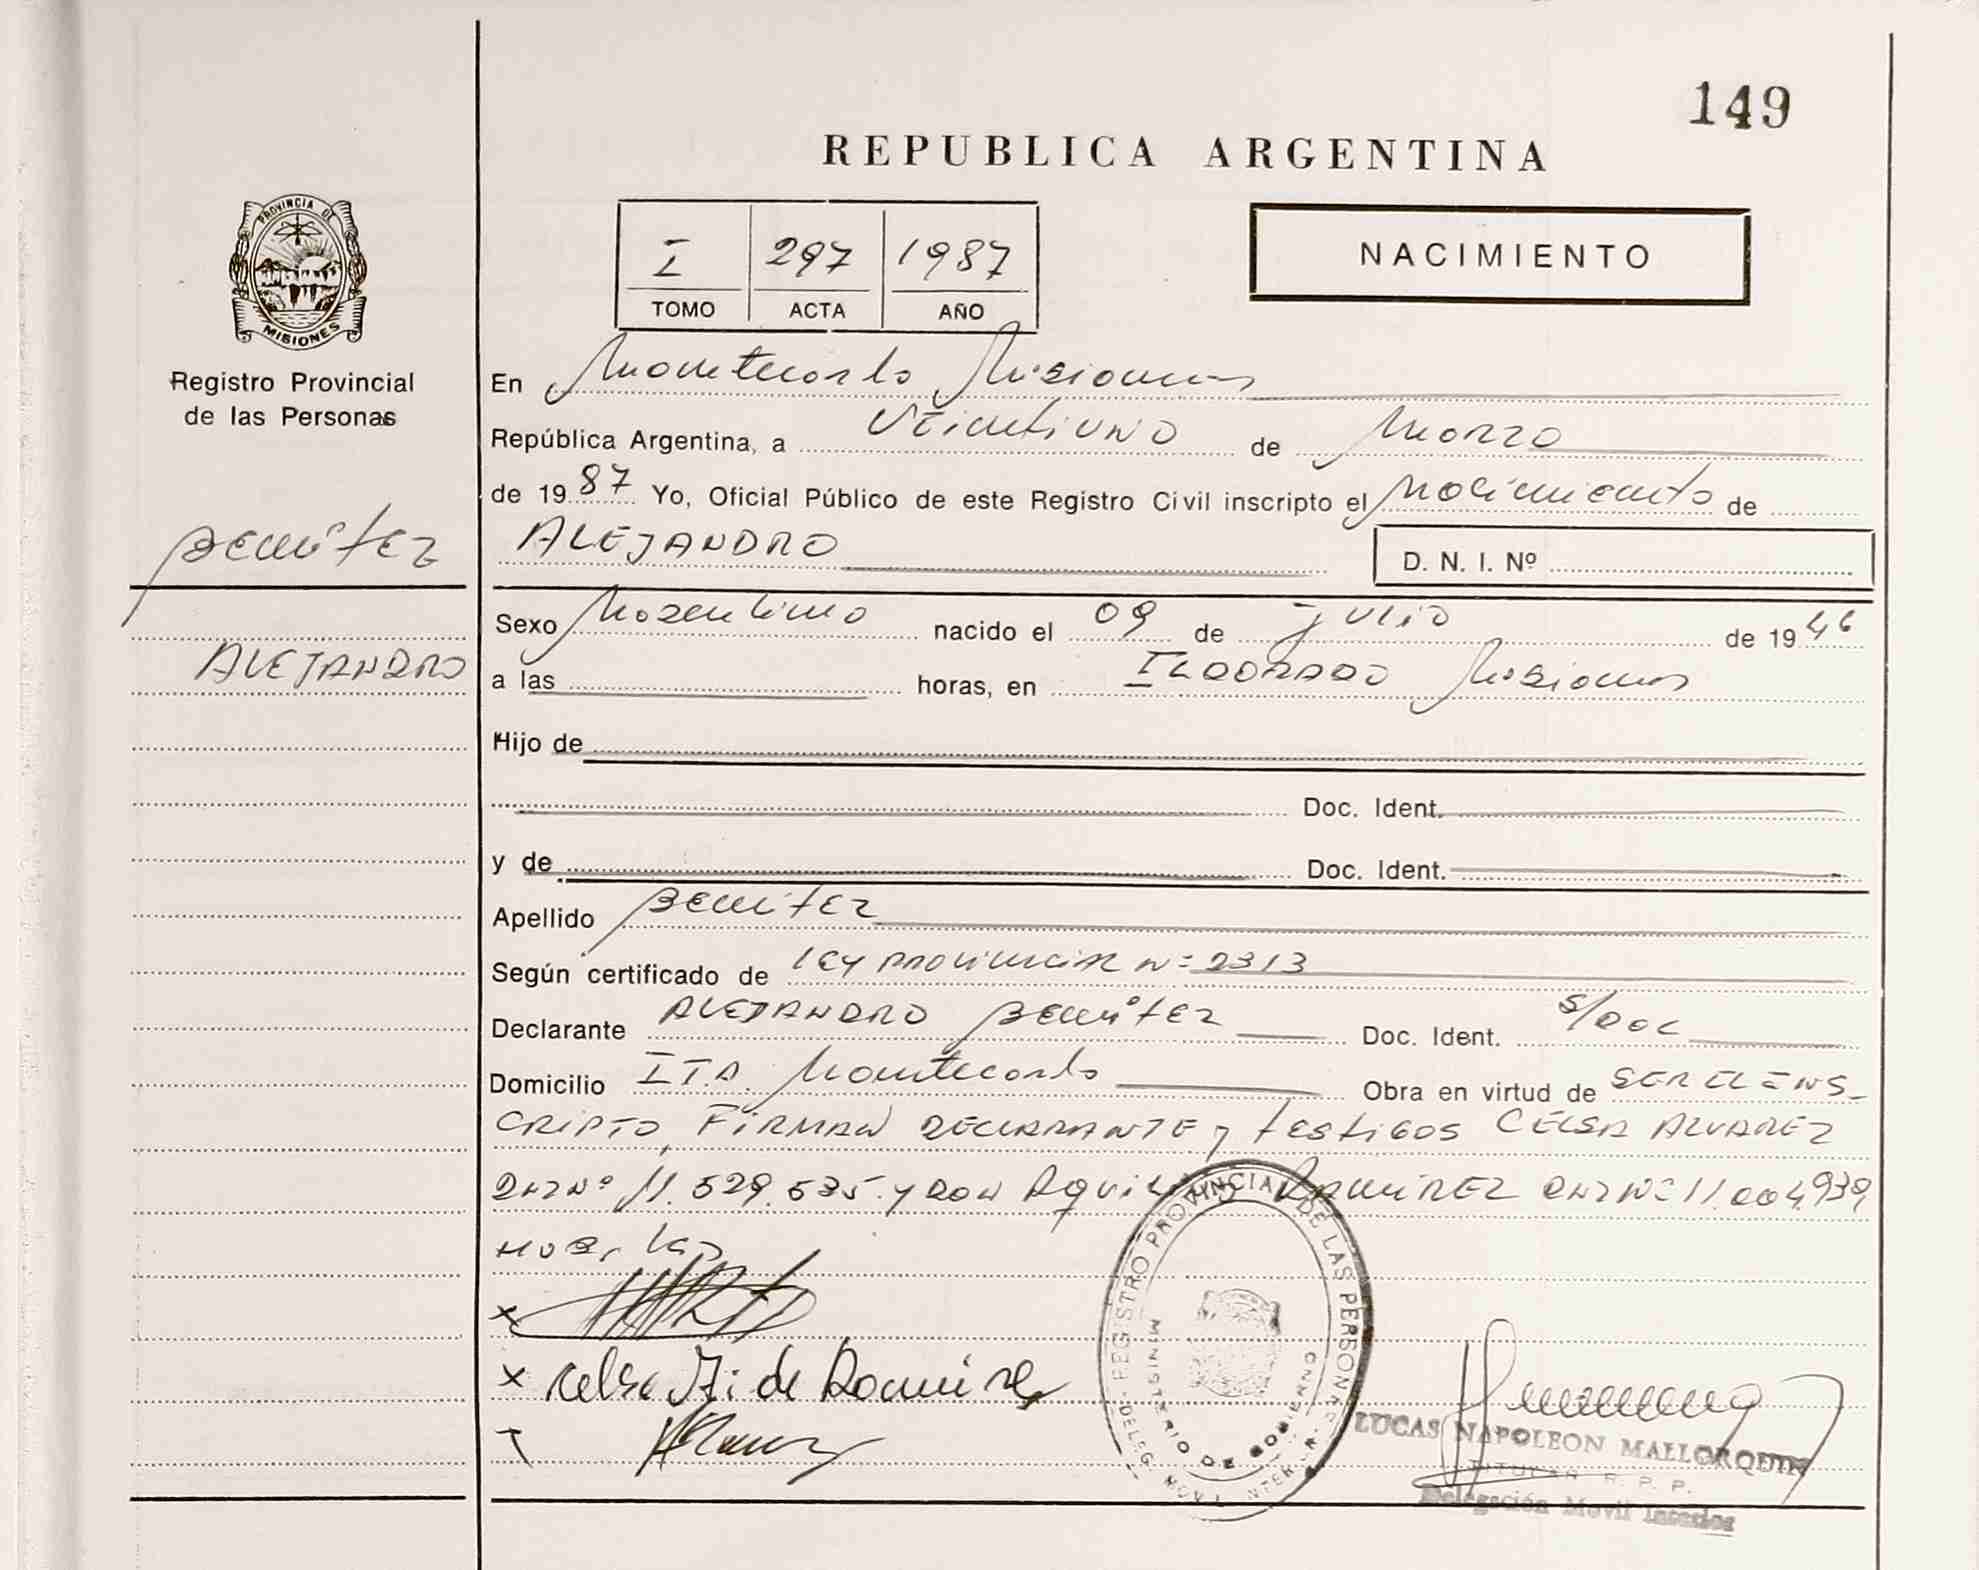 149
REPUBLICA ARGENTINA
PROVINCIA DE
MISIONES
Registro Provincial
de las Personas
I 297 1987
TOMO ACTA AÑO
NACIMIENTO
En Montecarlo Misiones
República Argentina, a Veintiuno de Marzo
de 1987 Yo, Oficial Público de este Registro Civil inscripto el Nacimiento de
Benítez
ALEJANDRO D. N. I. Nº
Sexo Masculino nacido el 09 de julio de 1946
ALEJANDRO
a las horas, en ELDORADO Misiones
Hijo de
Doc. Ident.
y de Doc. Ident.
Apellido Benítez
Según certificado de Ley PROVINCIAL Nº 2313
Declarante ALEJANDRO Benítez Doc. Ident. S/DOC
Domicilio ITA. Montecarlo Obra en virtud de SER EL INS-
CRIPTO, FIRMAN DECLARANTE y testigos CELSA ALVAREZ
DNI Nº 11.529.535 y DON Aquilino RAMIREZ DNI Nº 11.004.939
x
x Celsa A. de Ramirez
REGISTRO PROVINCIAL DE LAS PERSONAS
MINISTERIO DE GOBIERNO
DELEG. MOVIL INTER
LUCAS NAPOLEON MALLORQUIN
TITULAR R. P. P.
Delegación Movil Interior